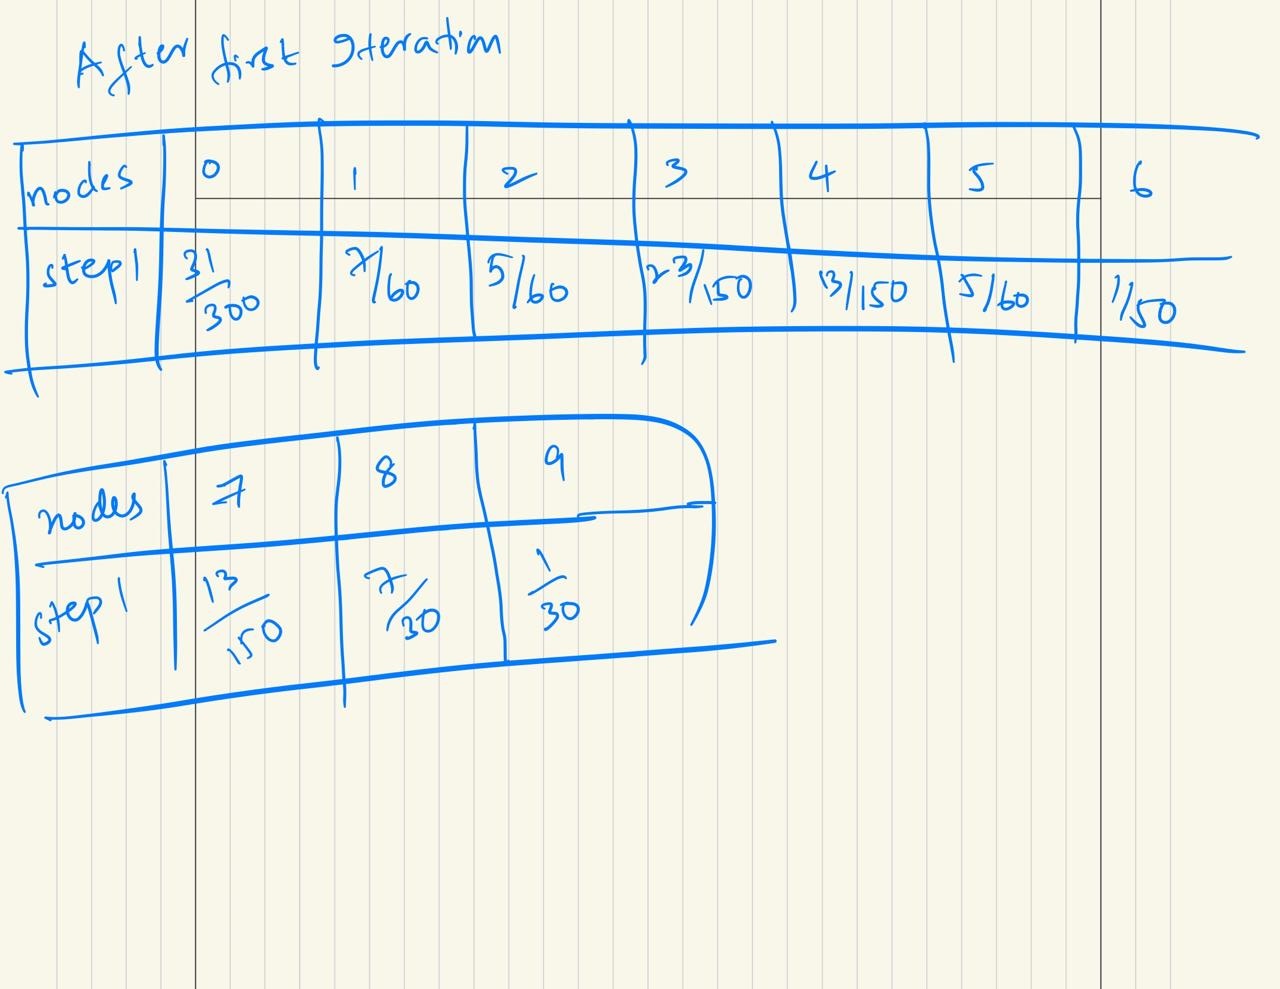 After first Iteration
nodes 0 1 2 3 4 5 6
step1 31/300 7/60 5/60 23/150 13/150 5/60 1/50
nodes 7 8 9
step1 13/150 7/30 1/30